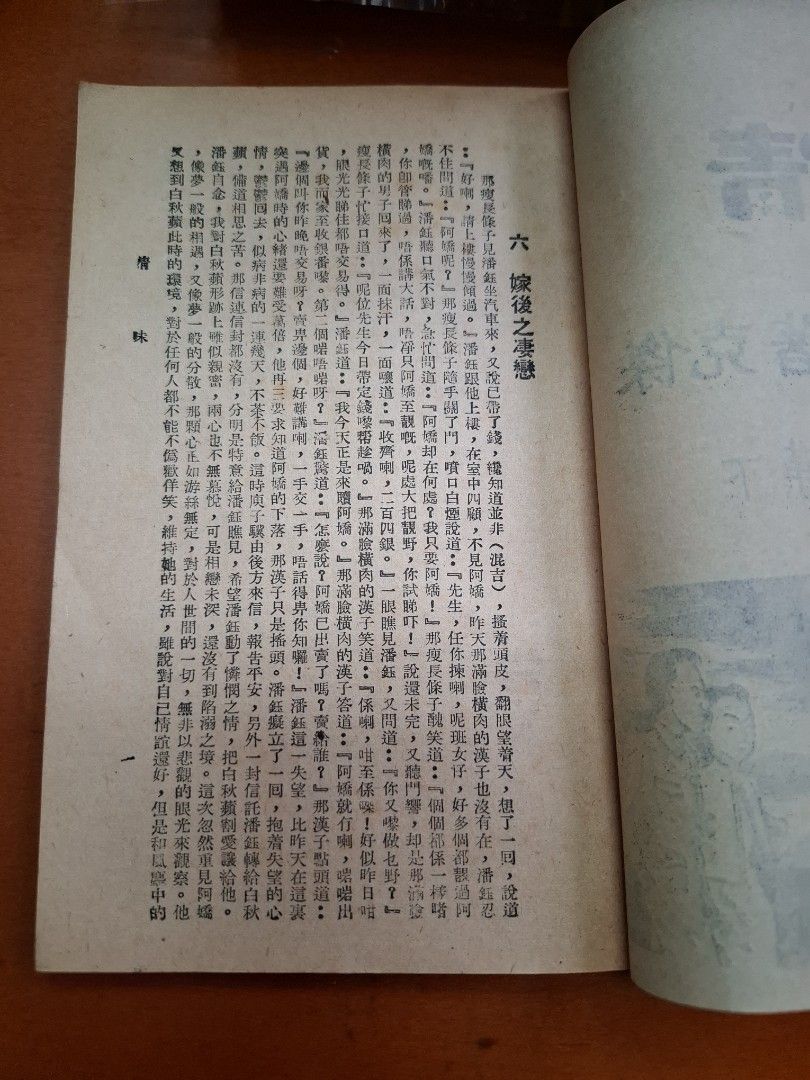 六　嫁後之凄戀
那瘦長條子見潘鈺坐汽車來，又說已帶了錢，纔知道並非（混吉），搔着頭皮，翻眼望着天，想了一回，說道
：『好喇，請上樓慢慢傾過。』潘鈺跟他上樓，在室中四顧，不見阿嬌，昨天那滿臉橫肉的漢子也沒有在，潘鈺忍
不住問道：『阿嬌呢？』那瘦長條子隨手關了門，噴口白煙說道：『先生，任你揀喇，呢班女仔，好多個都靚過阿
嬌嘅噃。』潘鈺聽口氣不對，急忙問道：『阿嬌却在何處？我只要阿嬌！』那瘦長條子醜笑道：『個個都係一樣啫
，你卽管睇過，唔係講大話，唔淨只阿嬌至靚嘅，呢處大把靚野，你試睇吓！』說還未完，又聽門響，却是那滿臉
橫肉的男子回來了，一面抹汗，一面嚷道：『收齊喇，二百四銀。』一眼瞧見潘鈺，又問道：『你又嚟做乜野？』
瘦長條子忙接口道：『呢位先生今日帶定錢嚟幫趁喎。』那滿臉橫肉的漢子笑道：『係喇，咁至係㗎！好似昨日咁
，眼光光睇住都唔交易得。』潘鈺道：『我今天正是來贖阿嬌。』那滿臉橫肉的漢子答道：『阿嬌就冇喇，啱啱出
貨，我而家至收銀番嚟。第二個啱唔啱呀？』潘鈺驚道：『怎麼說？阿嬌已出賣了嗎？賣給誰？』那漢子點頭道：
『邊個叫你昨晚唔交易呀？賣畀邊個，好難講喇，一手交一手，唔話得畀你知囉！』潘鈺這一失望，比昨天在這裏
突遇阿嬌時的心緒還要難受萬倍，他再三要求知道阿嬌的下落，那漢子只是搖頭。潘鈺癡立了一回，抱着失望的心
情，鬱鬱回去，似病非病的一連幾天，不茶不飯。這時庾子驥由後方來信，報告平安，另外一封信託潘鈺轉給白秋
蘋，備道相思之苦。那信連信封都沒有，分明是特意給潘鈺瞧見，希望潘鈺動了憐憫之情，把白秋蘋割愛讓給他。
潘鈺自念，我對白秋蘋形跡上雖似親密，兩心也不無慕悅，可是相戀未深，還沒有到陷溺之境。這次忽然重見阿嬌
，像夢一般的相遇，又像夢一般的分散，那顆心正如游絲無定，對於人世間的一切，無非以悲觀的眼光來觀察。他
又想到白秋蘋此時的環境，對於任何人都不能不僞歡佯笑，維持她的生活，雖說對自己情誼還好，但是和風塵中的
情　味
一